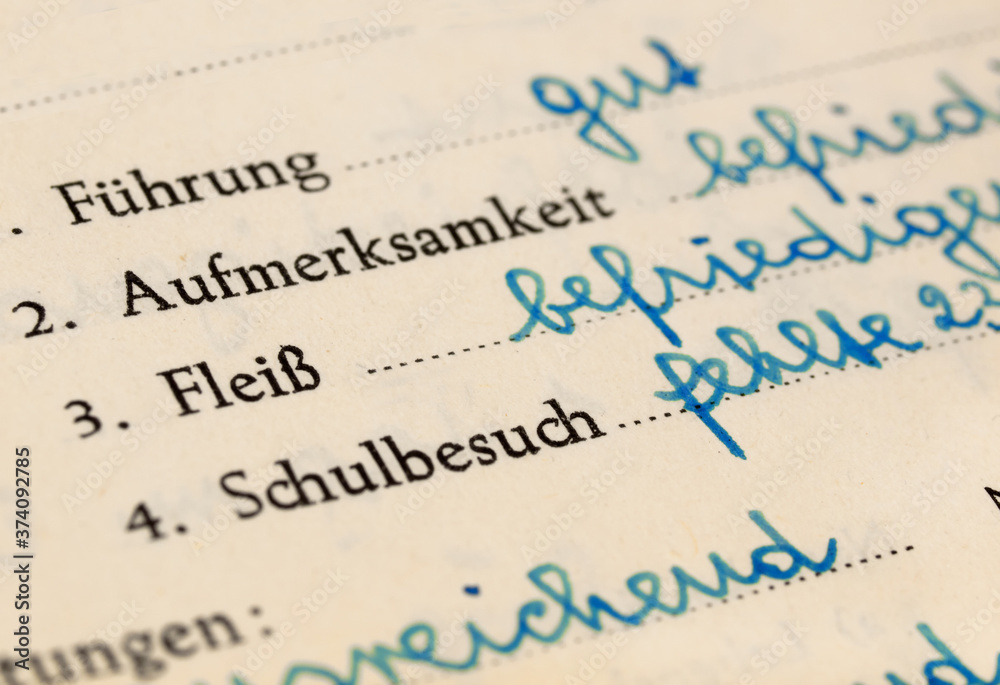 . Führung gut
2. Aufmerksamkeit befried
3. Fleiß befriedigen
4. Schulbesuch fehlte 23
rungen:
sreichend
Adobe Stock | #374092785